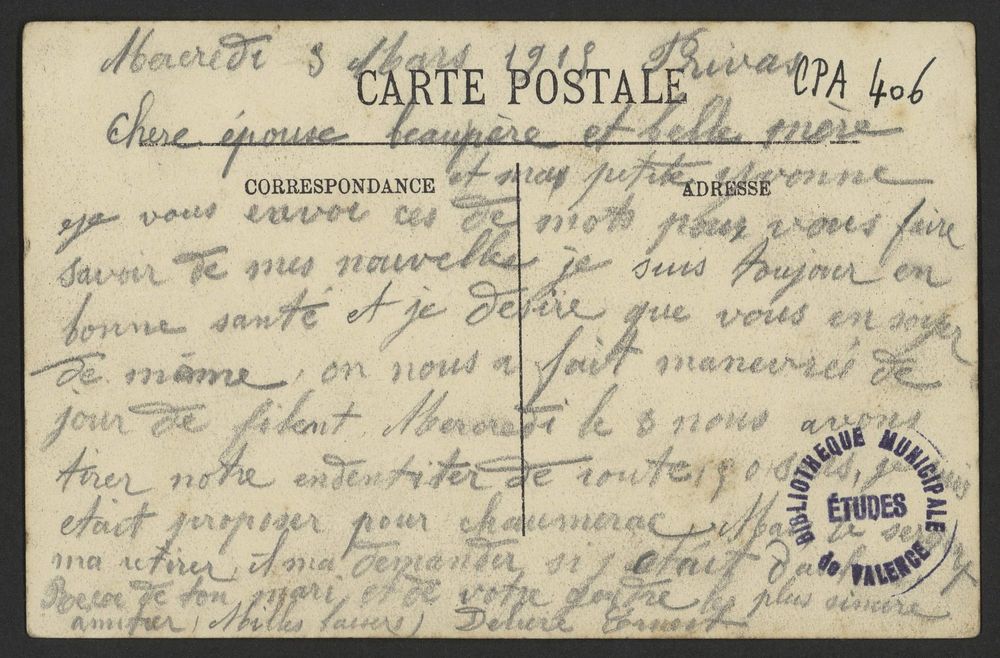 Mercredi 3 Mars 1915 Privas
CARTE POSTALE
CPA 406
Chere épouse beaupère et belle mère
CORRESPONDANCE
ADRESSE
et mas petite yvonne
je vous envoi ces de mots pour vous faire
savoir de mes nouvelle je suis toujour en
bonne santé et je desire que vous en soyer
de même, on nous a fait manevrés de
jour de filent Mercredi le 3 nous avons
tirer notre endentiter de route, 30 sous, je
etait proposer pour chaumerac Mais le
ma retirer, il ma demander si j etait
de ton mari et de votre gendre les plus simcre
amitier, Milles baisers) Ernest
BIBLIOTHEQUE MUNICIPALE
ÉTUDES
de VALENCE